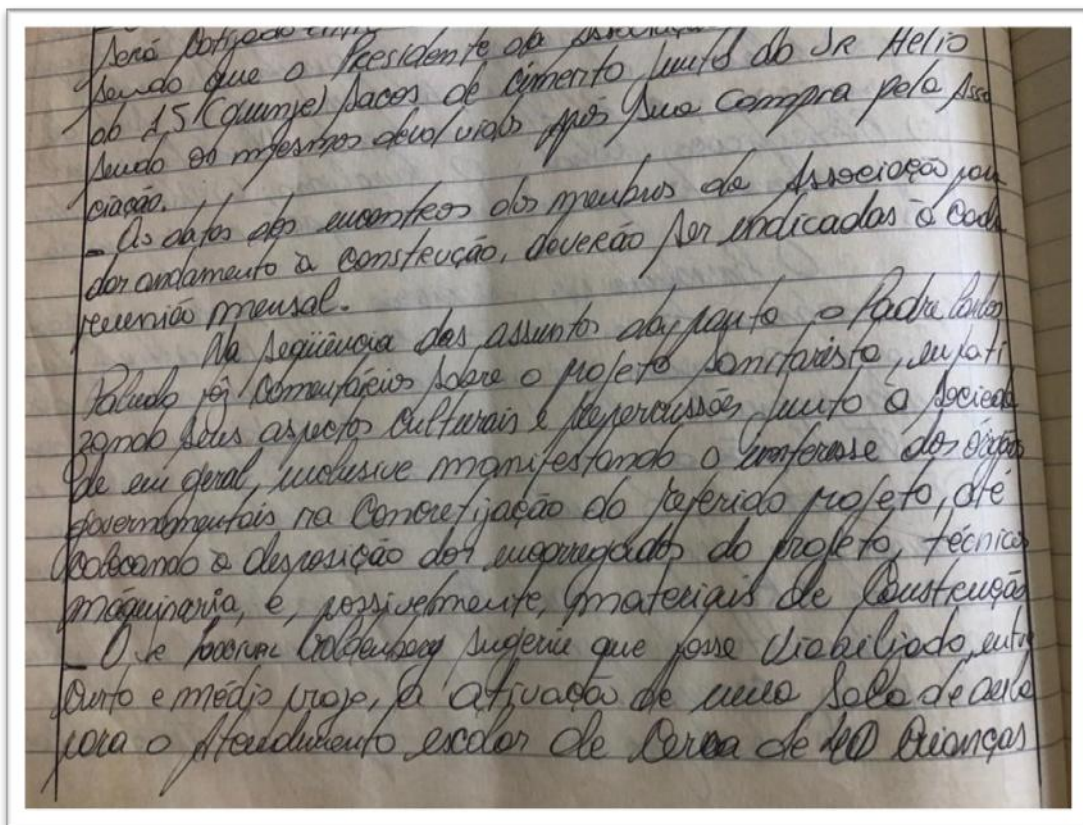 Será
sendo que o Presidente da Associação
ob 15 (quinze) sacos de cimento junto do SR Helio
sendo os mesmos devolvidos após sua compra pela Asso
ciação.
- As datas dos encontros dos membros da Associação para
dar andamento à construção, deverão ser indicadas à cada
reunião mensal.
Na seqüência dos assuntos da pauta o Padre Carlos
Paludo fez comentários sobre o projeto Sanitarista, enfati
zando seus aspectos culturais e repercussões junto à socieda
de em geral, inclusive manifestando o interesse dos órgãos
governamentais na concretização do referido projeto, até
colocando a disposição dos encarregados do projeto, técnicos
máquinaria, e, possivelmente, materiais de construção
- O Goldenberg sugeriu que fosse viabilizado, entre
curto e médio prazo, a ativação de uma sala de aula
para o Atendimento escolar de cerca de 40 crianças